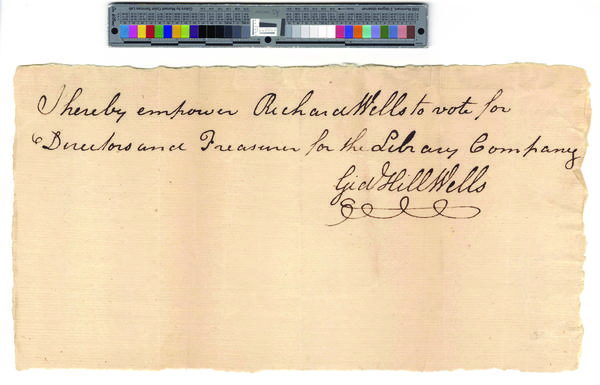 I hereby empower Richard Wells to vote for
Directors and Treasurer for the Library Company
Gid Hill Wells